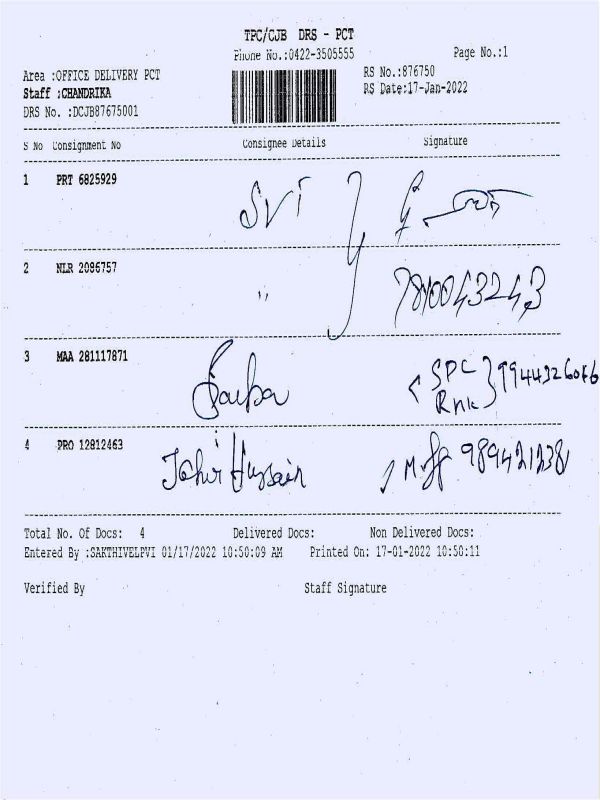 TPC/CJB DRS - PCT
Phone No.:0422-3505555 Page No.:1
Area :OFFICE DELIVERY PCT RS No.:876750
Staff :CHANDRIKA RS Date:17-Jan-2022
DRS No. :DCJB87675001
S No Consignment No Consignee Details Signature
1 PRT 6825929 SVT
2 NLR 2096757 " 7810043243
3 MAA 281117871 SPC
4 PRO 12812463 Tahir Hussain
Total No. Of Docs: 4 Delivered Docs: Non Delivered Docs:
Entered By :SAKTHIVELPVI 01/17/2022 10:50:09 AM Printed On: 17-01-2022 10:50:11
Verified By Staff Signature